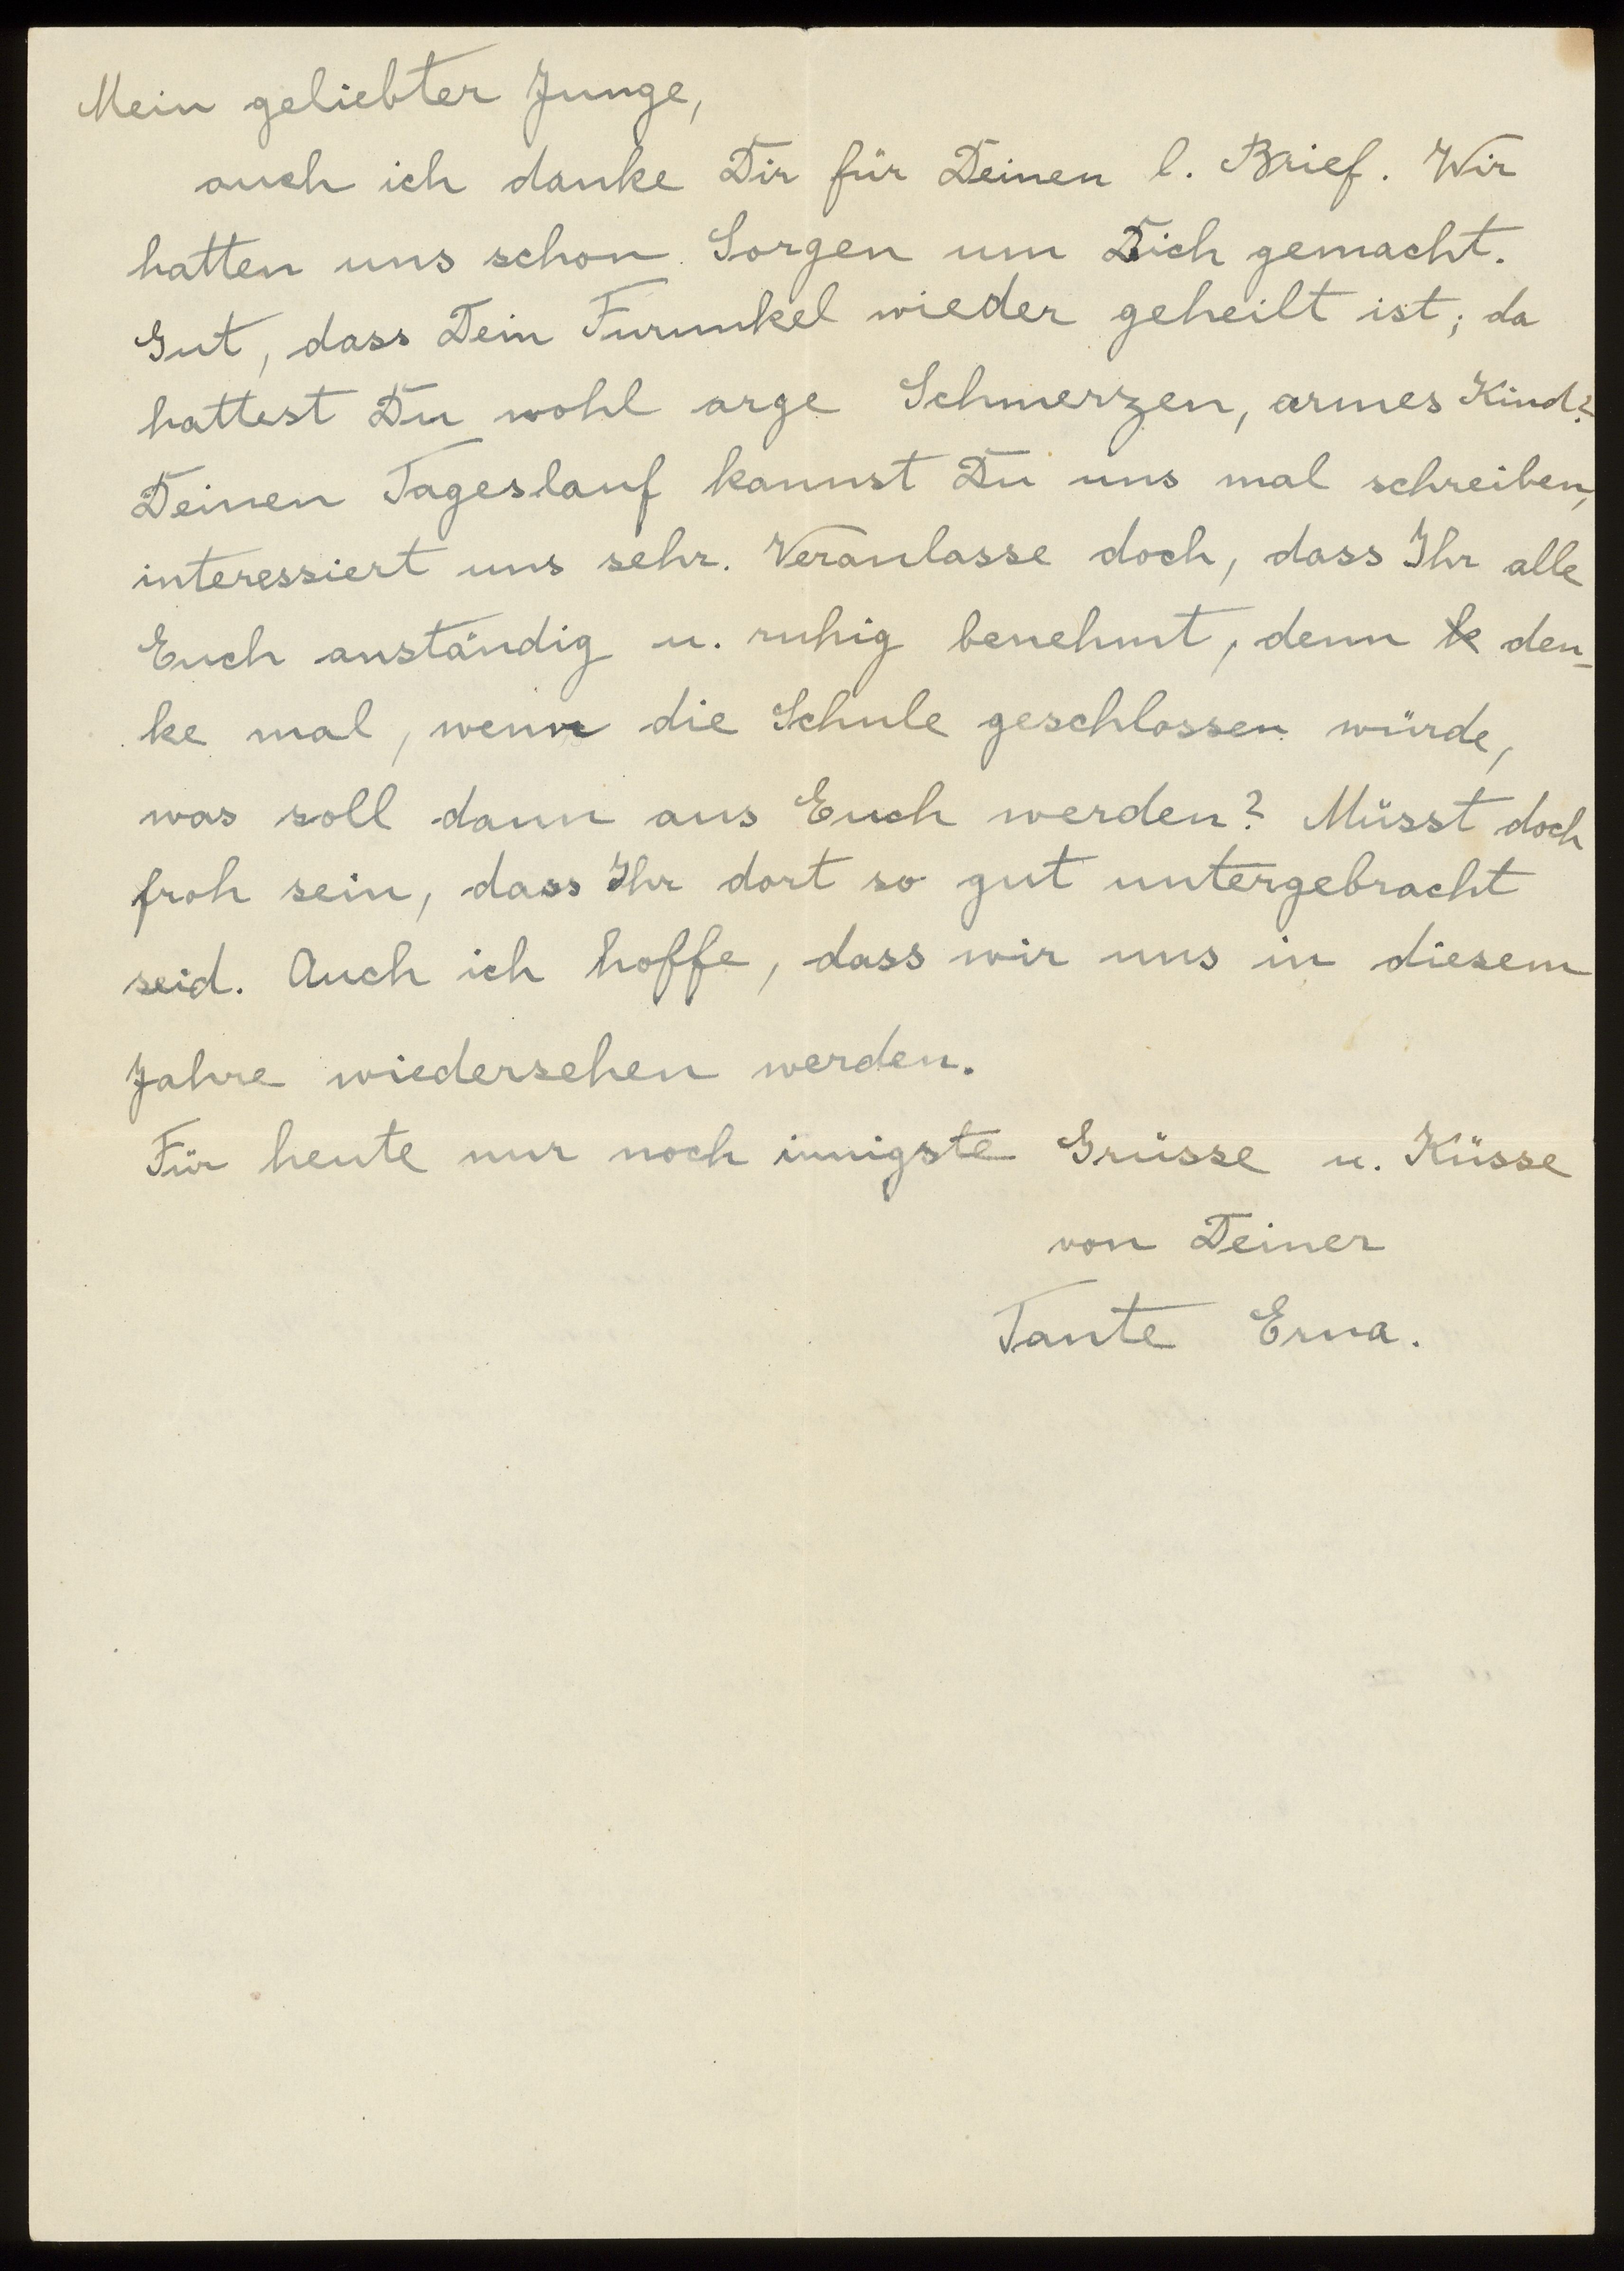 Mein geliebter Junge,
auch ich danke Dir für Deinen l. Brief. Wir
hatten uns schon Sorgen um Dich gemacht.
Gut, dass Dein Furunkel wieder geheilt ist; da
hattest Du wohl arge Schmerzen, armes Kind?
Deinen Tageslauf kannst Du uns mal schreiben,
interessiert uns sehr. Veranlasse doch, dass Ihr alle
Euch anständig u. ruhig benehmt, denn den-
ke mal, wenn die Schule geschlossen würde,
was soll dann aus Euch werden? Müsst doch
froh sein, dass Ihr dort so gut untergebracht
seid. Auch ich hoffe, dass wir uns in diesem
Jahre wiedersehen werden.
Für heute nur noch innigste Grüsse u. Küsse
von Deiner
Tante Erna.